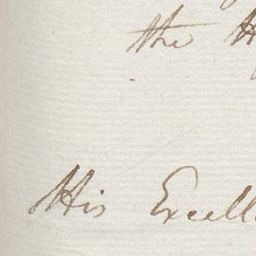 the H
His Excell